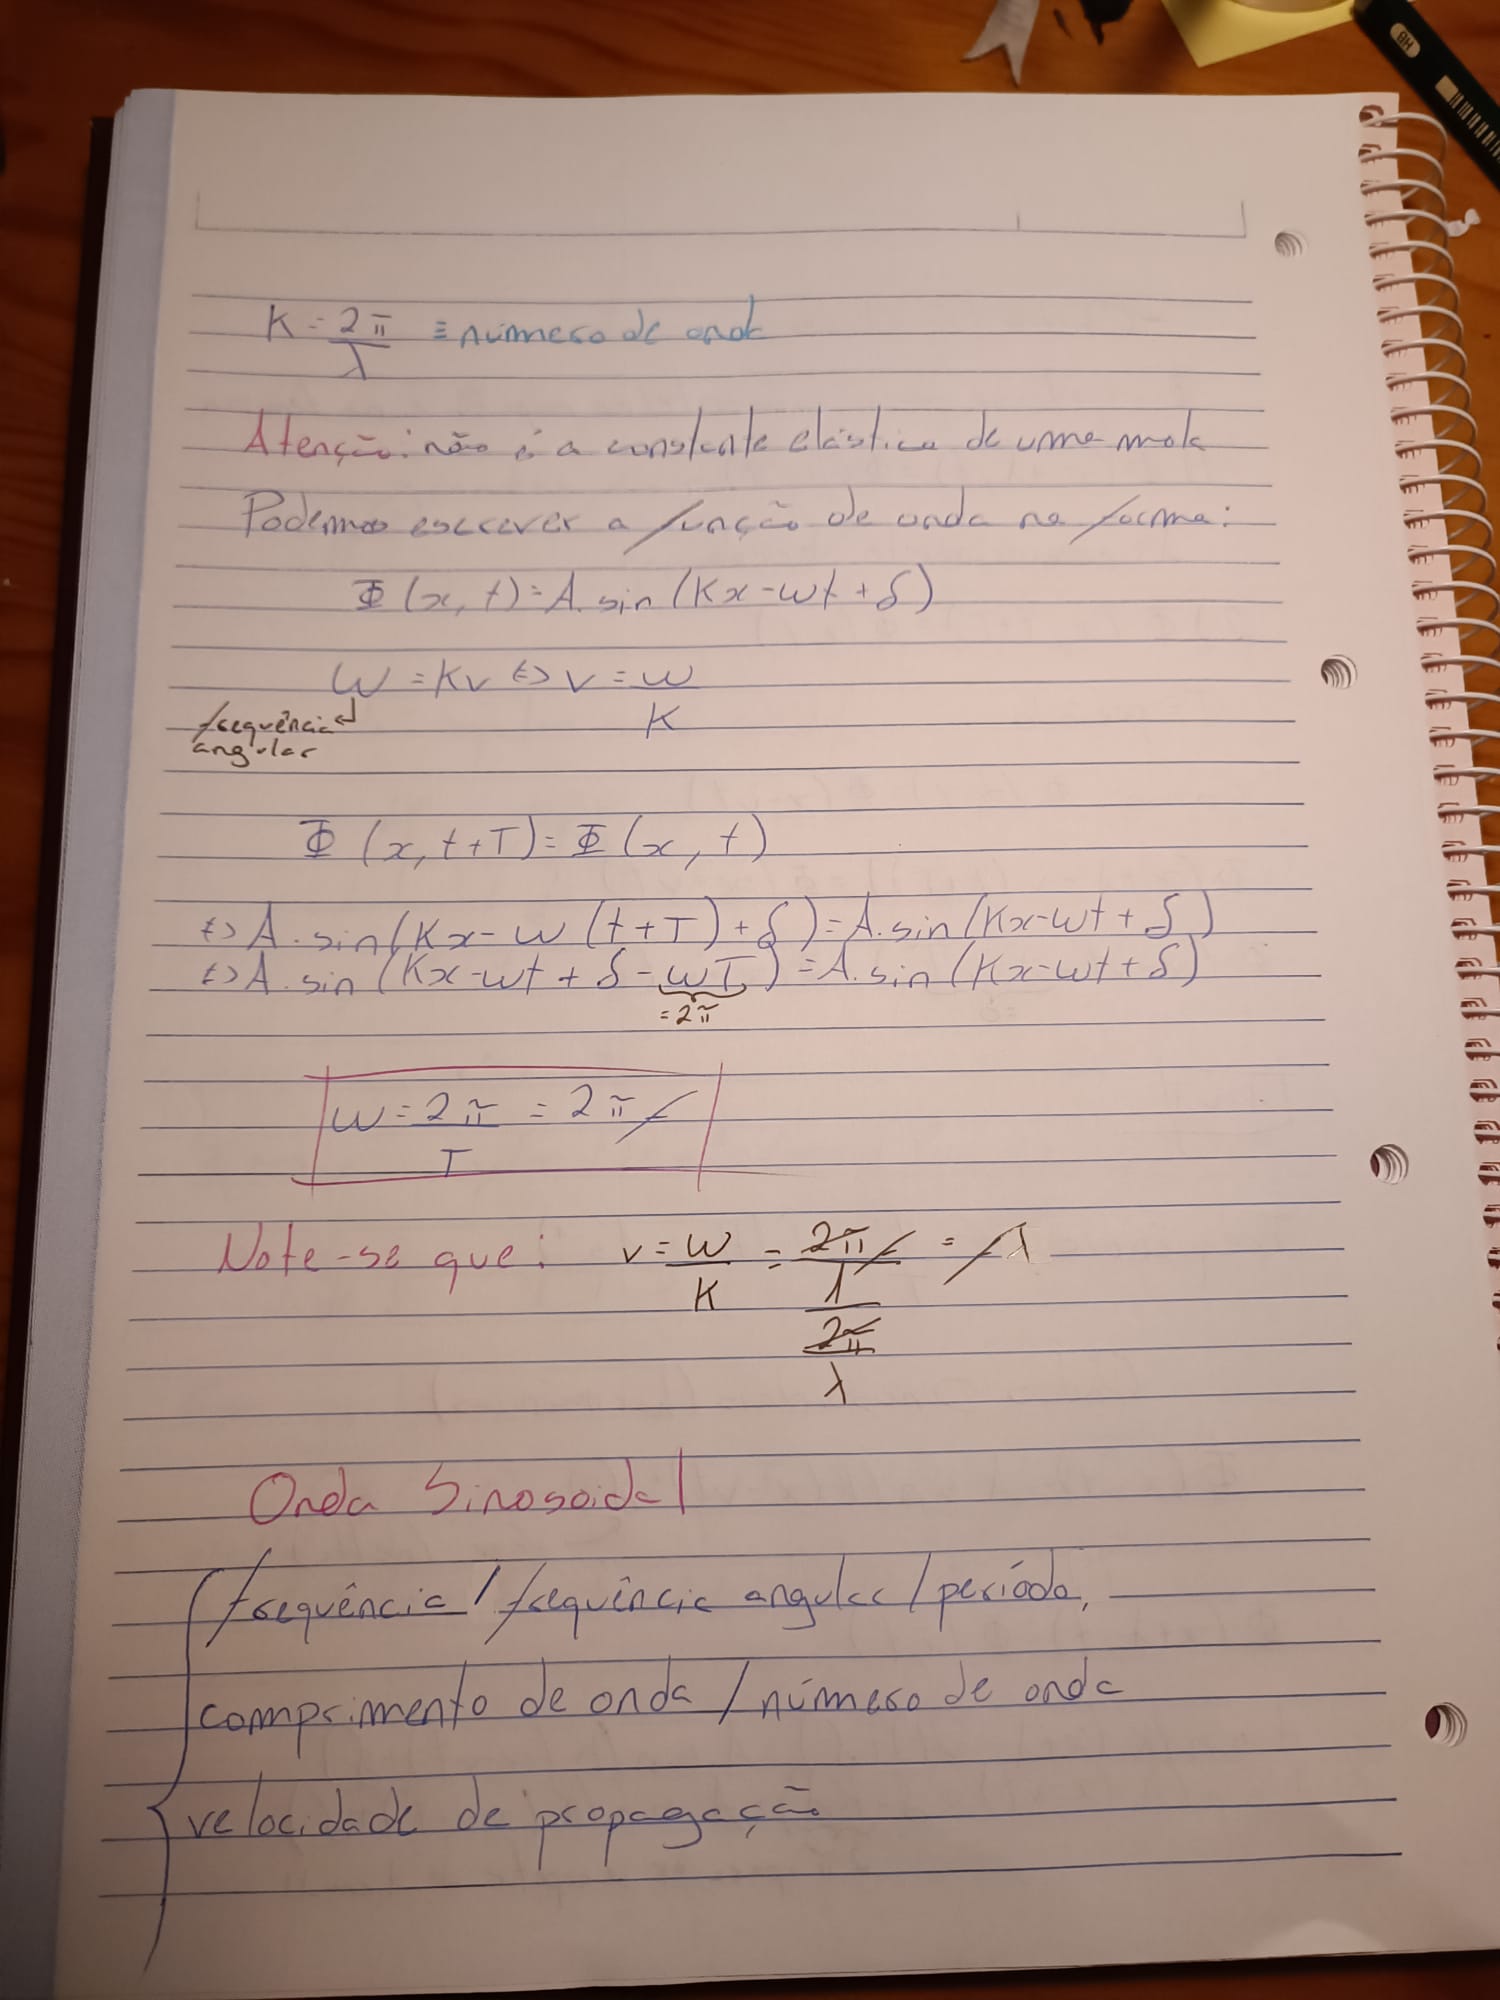 HB
K = 2π/λ ≡ número de onda
Atenção: não é a constante elástica de uma mola
Podemos escrever a função de onda na forma:
Φ(x, t) = A. sin(Kx - wt + δ)
w = Kv <=> v = w/K
frequência
angular
Φ(x, t+T) = Φ(x, t)
<=> A. sin(Kx - w(t+T) + δ) = A. sin(Kx - wt + δ)
<=> A. sin(Kx - wt + δ - wT) = A. sin(Kx - wt + δ)
= 2π
w = 2π/T = 2πf
Note-se que: v = w/K = (2πf/1)/(2π/λ) = fλ
Onda Sinosoidal
frequência / frequência angular / período,
comprimento de onda / número de onda
velocidade de propagação